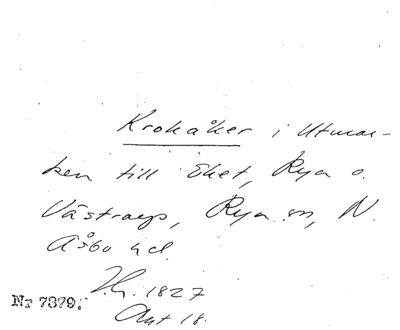 Krokåker i Utmar-
ken till Eket, Rya o.
Västraup, Rya sn, N.
Åsbo hd.
H. 1827
Akt 18.
Nr 7379.